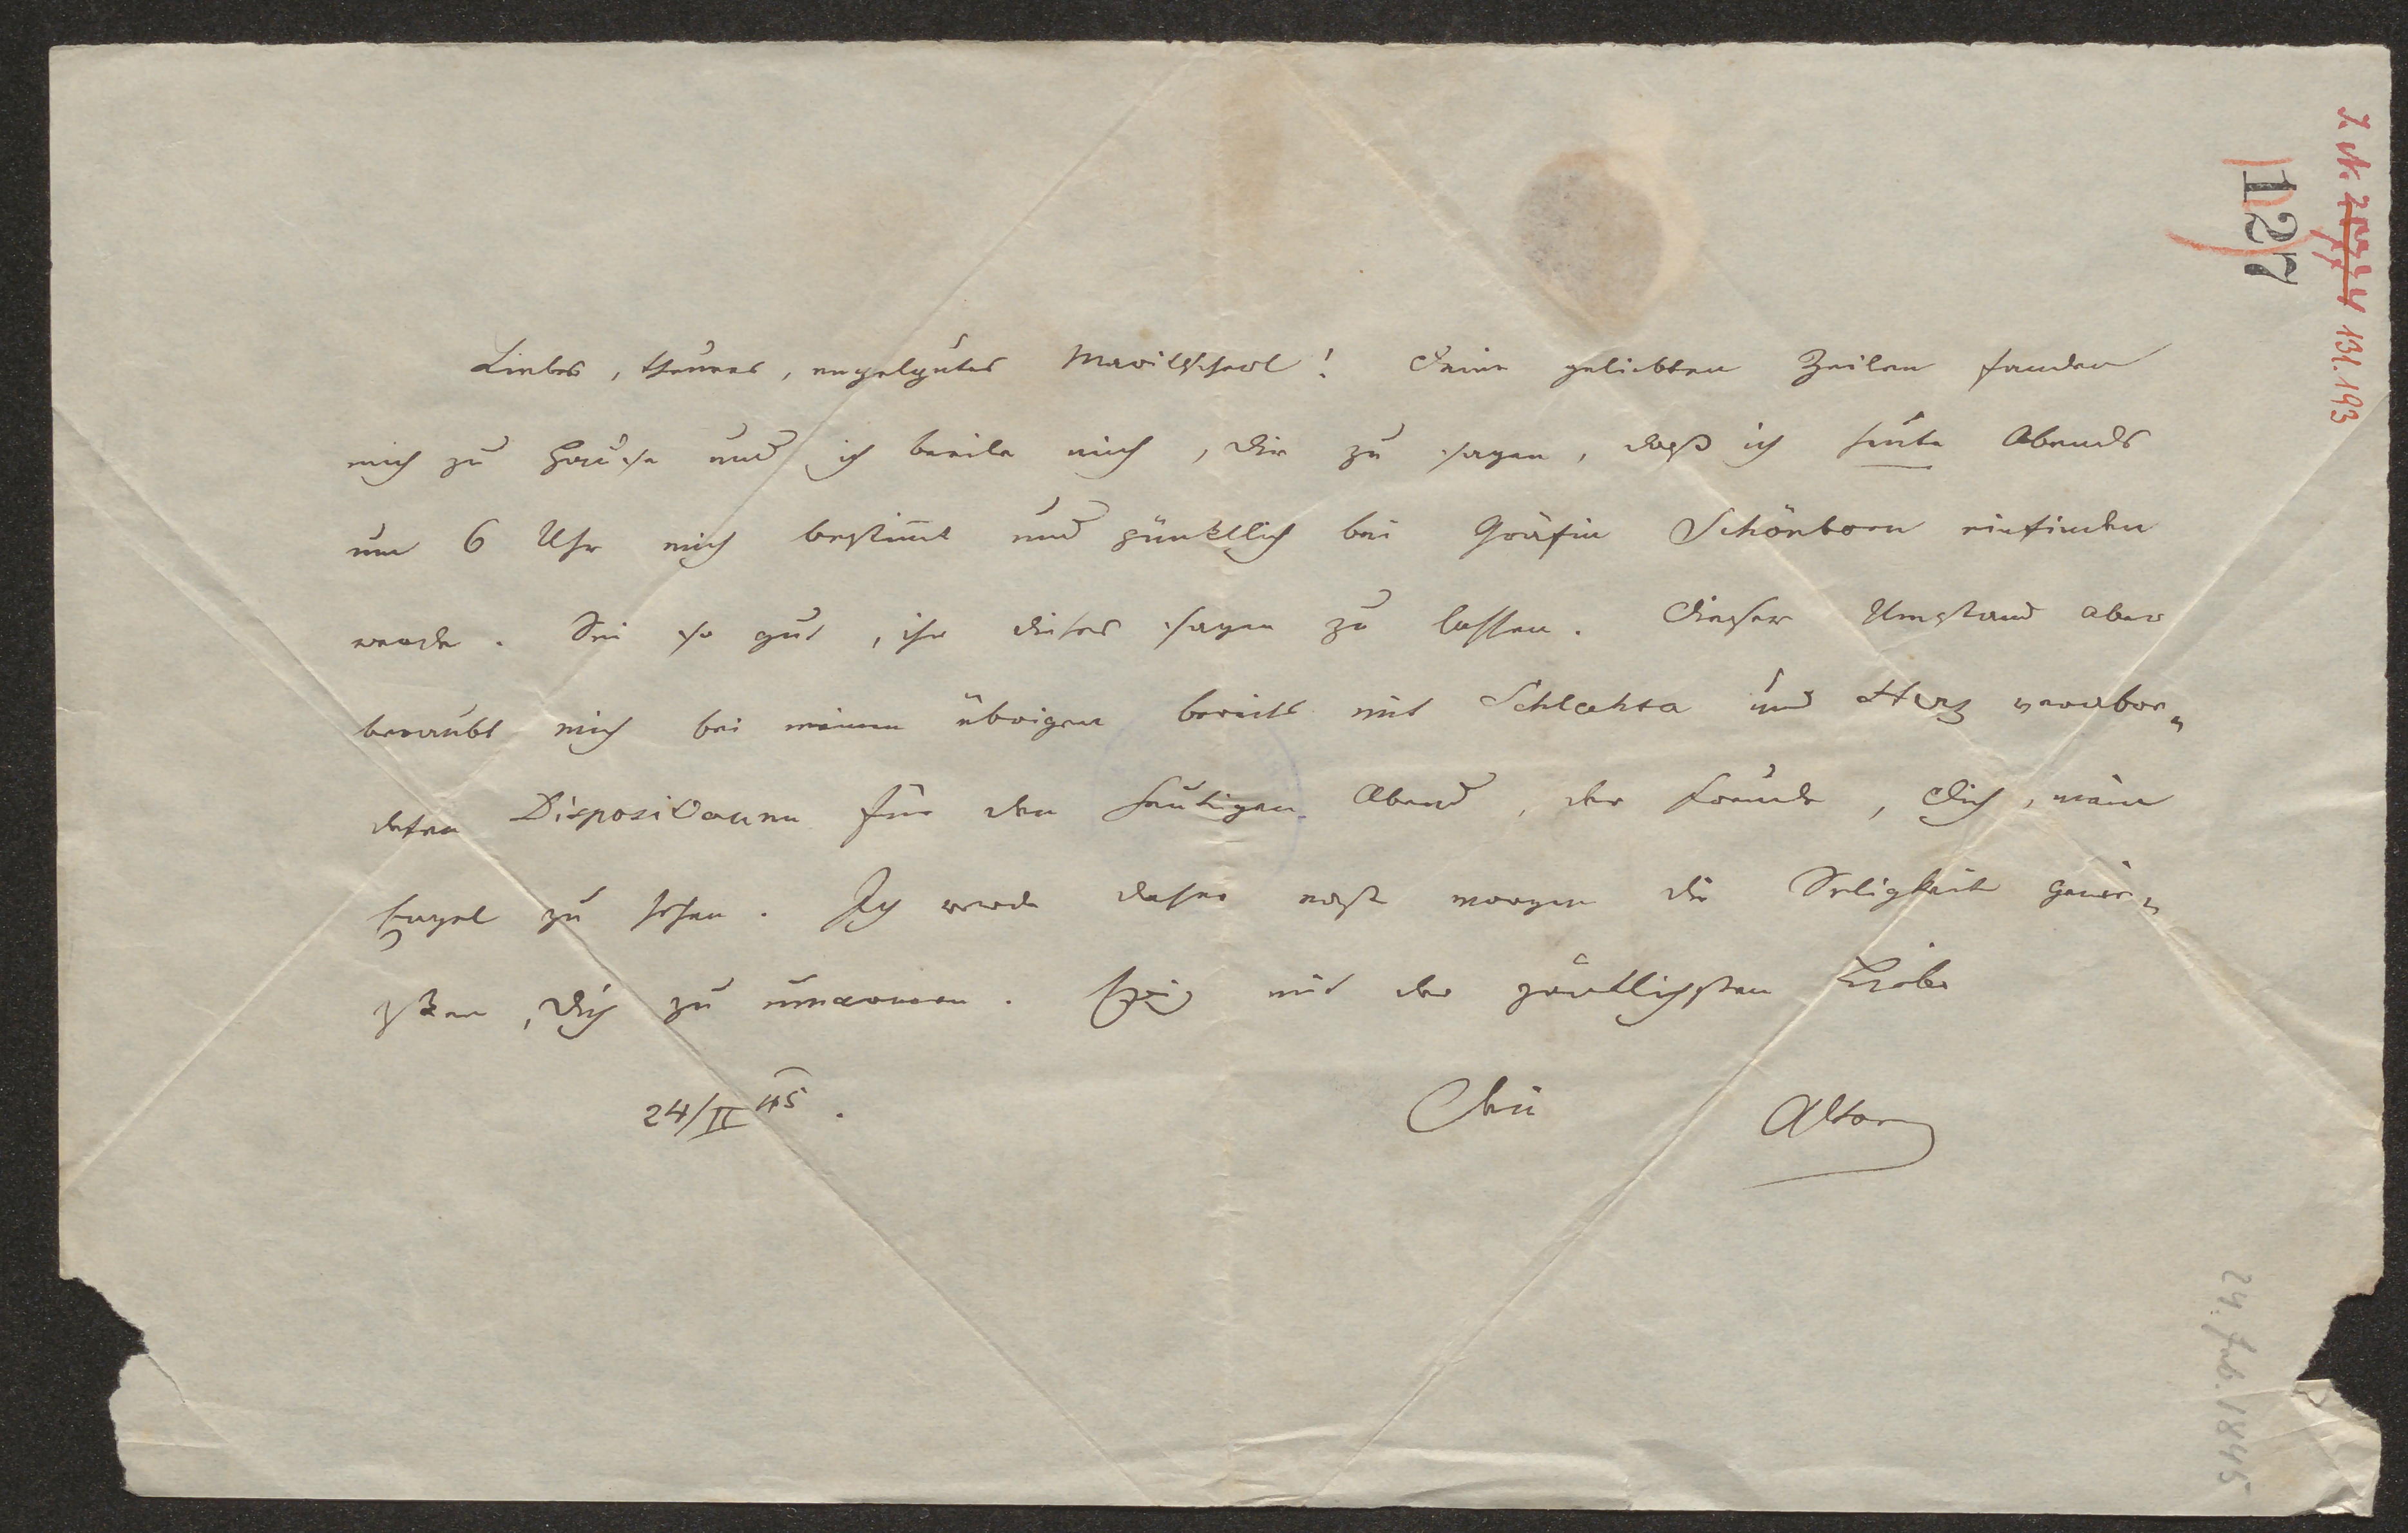 Liebes, theures, engelgutes Marilscherl! Deine geliebten Zeilen fanden
mich zu Hause und ich beeile mich, Dir zu sagen, daß ich heute Abends
um 6 Uhr mich bestim̅t und pünktlich bei Gräfin Schönborn einfinden
werde. Sei so gut, ihr dieses sagen zu lassen. Dieser Umstand aber
beraubt mich bei meinen übrigen bereits mit Schlechta und verabre„
deten Dispositionen für den heutigen Abend, der Freude, Dich, mein
Engel zu sehen. Ich werde daher erst morgen die Seligkeit genie„
ßen, Dich zu umarmen. mit der zärtlichsten Liebe
24/II 45.
Dein Alter
J. N. 131.193
127
24. Feb. 1845